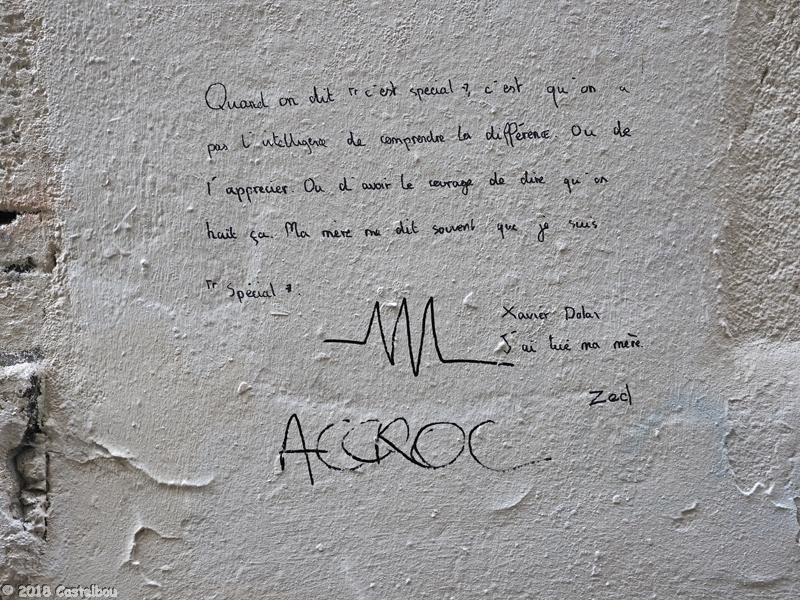 Quand on dit "c'est special", c'est qu'on a
pas l'intelligence de comprendre la différence. Ou de
l'apprecier. Ou d'avoir le courage de dire qu'on
hait ça. Ma mère me dit souvent que je suis
"Spécial".
Xavier Dolan
J'ai tué ma mère.
Zed
ACCROC
© 2018 Castelbou